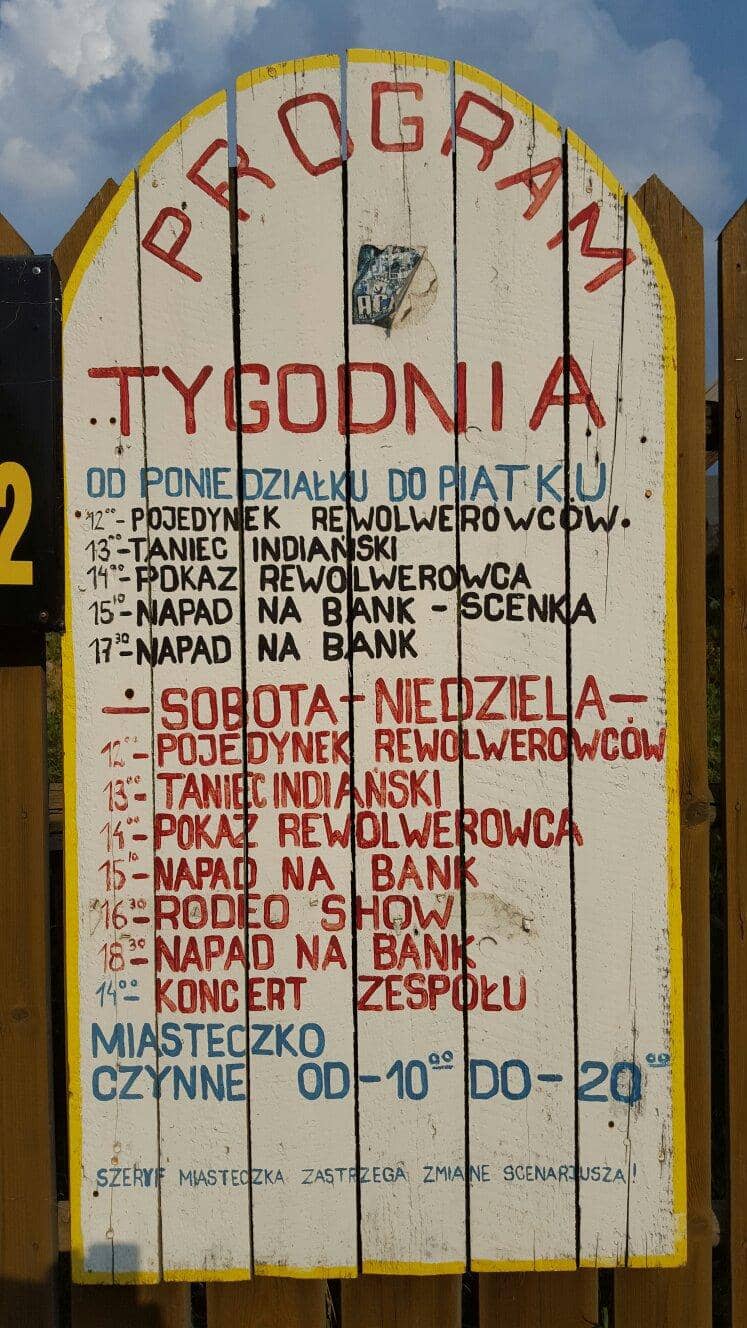 PROGRAM
TYGODNIA
OD PONIEDZIAŁKU DO PIATKU
12⁰⁰-POJEDYNEK REWOLWEROWCÓW.
13⁰⁰-TANIEC INDIAŃSKI
14⁰⁰-POKAZ REWOLWEROWCA
15¹⁰-NAPAD NA BANK - SCENKA
17³⁰-NAPAD NA BANK
— SOBOTA - NIEDZIELA —
12⁰⁰-POJEDYNEK REWOLWEROWCÓW
13⁰⁰-TANIEC INDIAŃSKI
14⁰⁰-POKAZ REWOLWEROWCA
15¹⁰-NAPAD NA BANK
16³⁰-RODEO SHOW
18³⁰-NAPAD NA BANK
14⁰⁰-KONCERT ZESPOŁU
MIASTECZKO
CZYNNE OD-10⁰⁰ DO-20⁰⁰
SZERYF MIASTECZKA ZASTRZEGA ZMIANE SCENARIUSZA!
2